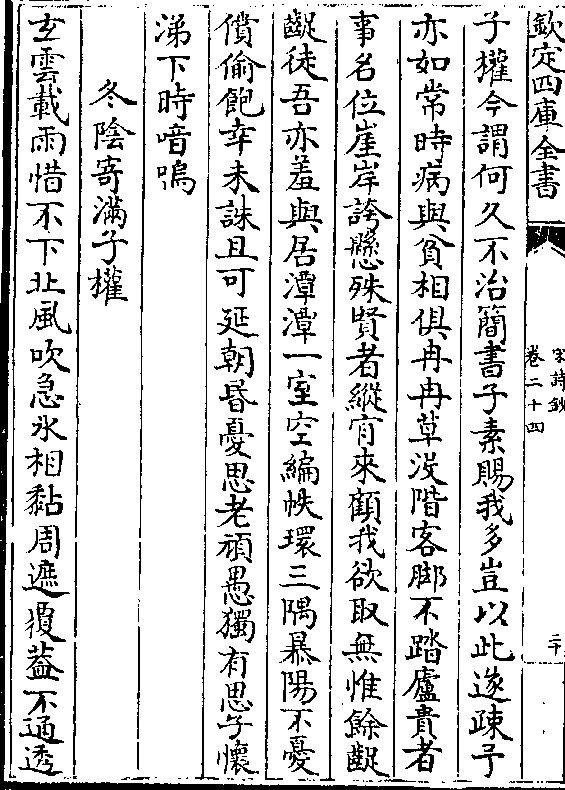 欽定四庫全書
宋詩鈔
卷二十四
二十
子權今謂何久不治簡書子素賜我多豈以此遂疎予
亦如常時病與貧相俱冉冉草沒階客脚不踏廬貴者
事名位崖岸誇懸殊賢者縱肯來顧我欲取無惟餘齪
齪徒吾亦羞與居潭潭一室空編帙環三隅暴陽不憂
償偷飽幸未誅且可延朝昏憂思老頑愚獨有思子懷
涕下時喑嗚
冬陰寄滿子權
玄雲載雨惜不下北風吹急氷相黏周遮覆葢不通透